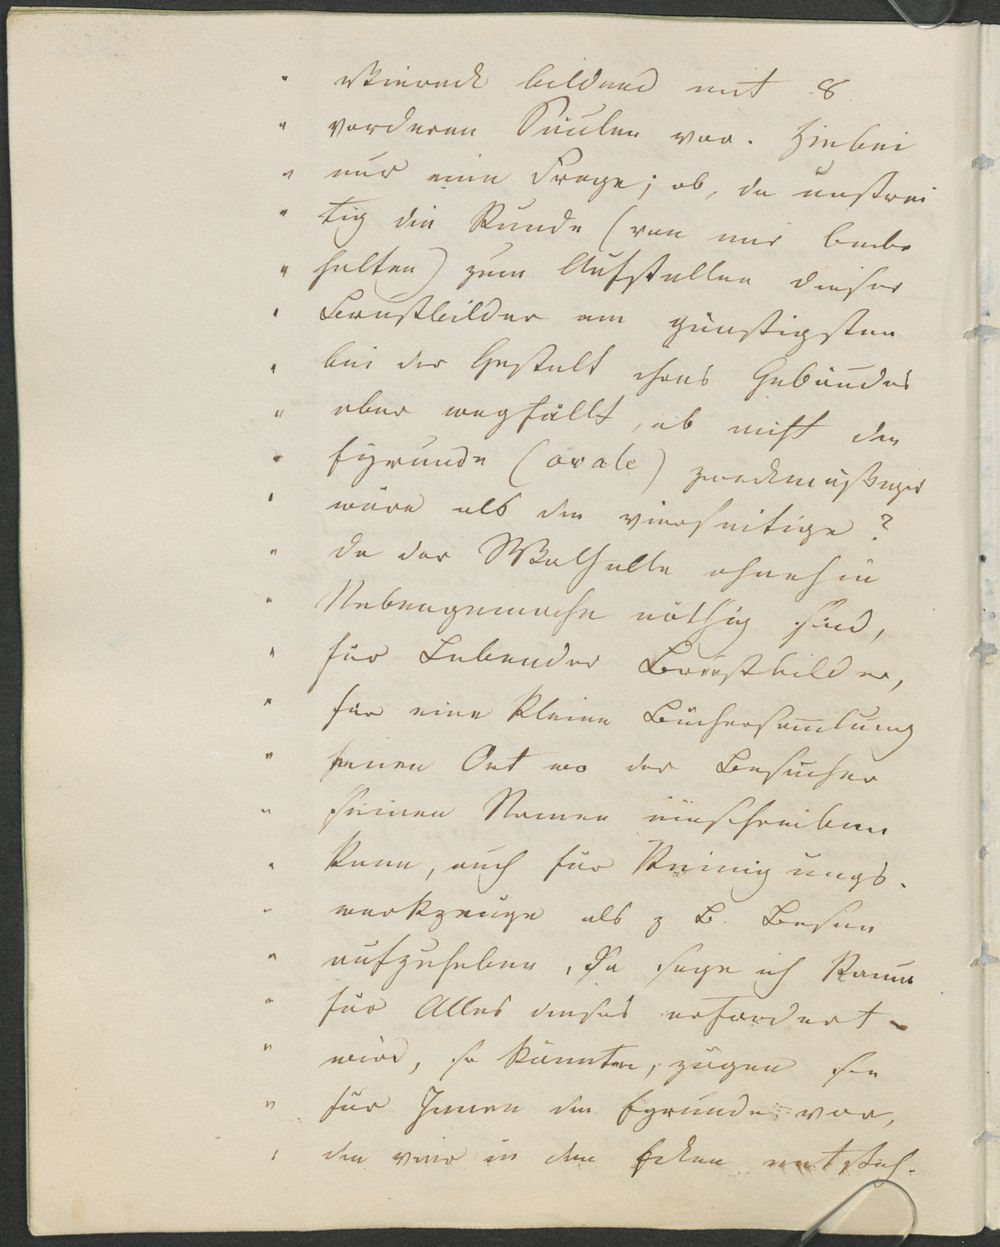 " Viereck bildend mit 8
" vorderen Säulen vor. Hiebei
" nur eine Frage; ob, da unstrei
" tig die Runde (von mir beibe
" halten) zum Aufstellen dieser
" Brustbilder am günstigsten
" bei der Gestalt ihres Gebäudes
" aber wegfällt, ob nicht die
" Eyrunde (ovale) zweckmäßiger
" wäre als die vierseitige?
" Da der Walhalla ohnehin
" Nebengemache nöthig sind,
" für Lebender Brustbilder,
" für eine kleine Büchersam̄lung
" jenen Ort wo der Besucher
" seinen Namen einschreiben
" kann, auch für Reinigungs-
" werkzeuge als z B. Besen
" aufzuheben, Da sage ich Raum
" für Alles dieses erfordert
" wird, so könnten, zögen sie
" für Innen die Eyrunde vor,
" die vier in den Ecken entsteh-